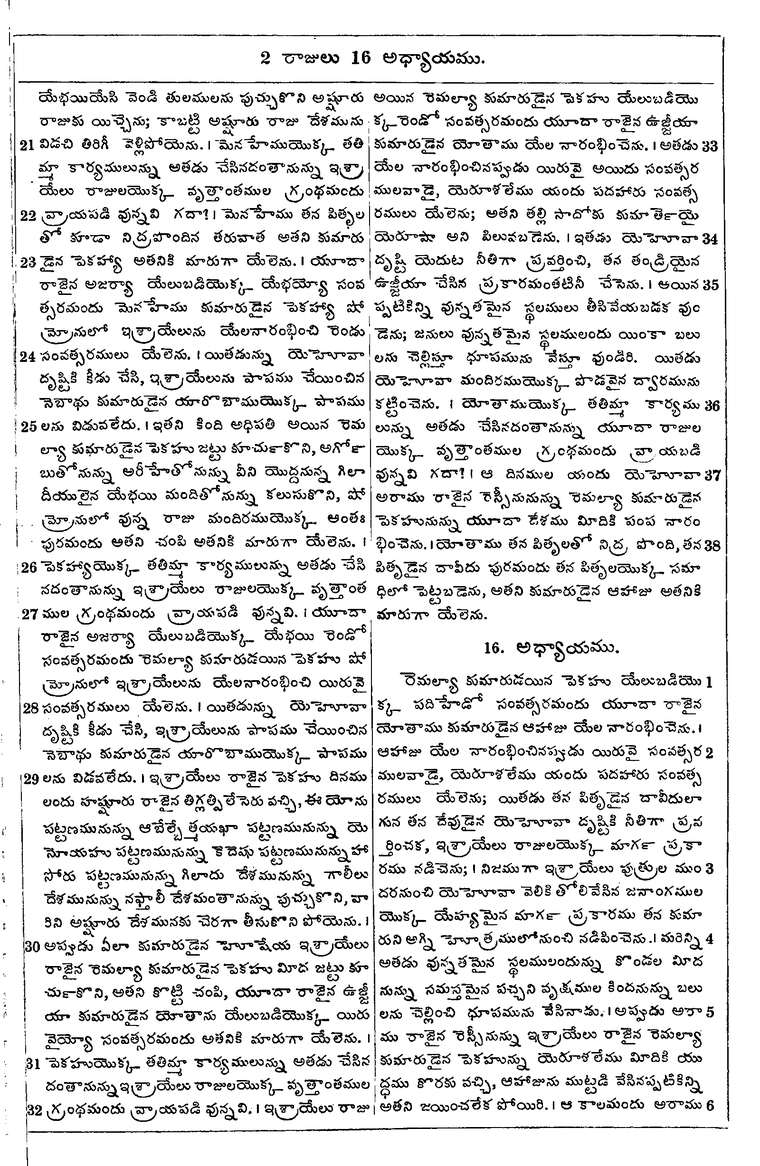 2 రాజులు 16 అధ్యాయము.
యేభయియేసి వెండి తులములను పుచ్చుకొని అష్షూరు
రాజుకు యిచ్చెను; కాబట్టి అష్షూరు రాజు దేశమును
21 విడచి తిరిగీ వెళ్లిపోయెను. । మెనహేముయొక్క తతి
మ్మా కార్యములున్ను అతడు చేసినదంతానున్ను ఇశ్రా
యేలు రాజులయొక్క వృత్తాంతముల గ్రంథమందు
22 వ్రాయపడి వున్నవి గదా! । మెనహేము తన పితృల
తో కూడా నిద్రపొందిన తరువాత అతని కుమారు
23 డైన పెకహ్యా అతనికి మారుగా యేలెను. । యూదా
రాజైన అజర్యా యేలుబడియొక్క యేభయ్యో సంవ
త్సరమందు మెనహేము కుమారుడైన పెకహ్యా షో
మ్రోనులో ఇశ్రాయేలును యేలనారంభించి రెండు
24 సంవత్సరములు యేలెను. । యితడున్ను యెహోవా
దృష్టికి కీడు చేసి, ఇశ్రాయేలును పాపము చేయించిన
నెబాథు కుమారుడైన యారొబాముయొక్క పాపము
25 లను విడువలేదు. । ఇతని కింది అధిపతి అయిన రెమ
ల్యా కుమారుడైన పెకహు జట్టు కూచుకొని, అగోʼ
బుతోనున్ను అరీహేతోనున్ను వీని యొద్దనున్న గిలా
దీయులైన యేభయి మందితోనున్ను కలుసుకొని, షో
మ్రోనులో వున్న రాజు మందిరముయొక్క అంతః
పురమందు అతని చంపి అతనికి మారుగా యేలెను. ।
26 పెకహ్యాయొక్క తతిమ్మా కార్యములున్ను అతడు చేసి
నదంతానున్ను ఇశ్రాయేలు రాజులయొక్క వృత్తాంత
27 ముల గ్రంథమందు వ్రాయపడి వున్నవి. । యూదా
రాజైన అజర్యా యేలుబడియొక్క యేభయి రెండో
సంవత్సరమందు రెమల్యా కుమారుడయిన పెకహు షో
మ్రోనులో ఇశ్రాయేలును యేలనారంభించి యిరువై
28 సంవత్సరములు యేలెను. । యితడున్ను యెహోవా
దృష్టికి కీడు చేసి, ఇశ్రాయేలును పాపము చేయించిన
నెబాథు కుమారుడైన యారొబాముయొక్క పాపము
29 లను విడవలేదు. । ఇశ్రాయేలు రాజైన పెకహు దినము
లందు హష్షూరు రాజైన తిగ్లత్పిలేసెరు వచ్చి, ఈ యోను
పట్టణమునున్ను ఆబేల్బేత్మయఖా పట్టణమునున్ను యె
నోయహు పట్టణమునున్ను కెదెషు పట్టణమునున్ను హా
సోరు పట్టణమునున్ను గిలాదు దేశమునున్ను గాలీలు
దేశమునున్ను నఫ్తాలీ దేశమంతానున్ను పుచ్చుకొని, వా
రిని అష్షూరు దేశమునకు చెరగా తీసుకొని పోయెను. ।
30 అప్పుడు ఏలా కుమారుడైన హూషేయ ఇశ్రాయేలు
రాజైన రెమల్యా కుమారుడైన పెకహు మీద జట్టు కూ
చుకొని, అతని కొట్టి చంపి, యూదా రాజైన ఉజ్జీ
యా కుమారుడైన యోతాను యేలుబడియొక్క యిరు
వైయ్యో సంవత్సరమందు అతనికి మారుగా యేలెను. ।
31 పెకహుయొక్క తతిమ్మా కార్యములున్ను అతడు చేసిన
దంతానున్ను ఇశ్రాయేలు రాజులయొక్క వృత్తాంతముల
32 గ్రంథమందు వ్రాయపడి వున్నవి. । ఇశ్రాయేలు రాజు
అయిన రెమల్యా కుమారుడైన పెకహు యేలుబడియొ
క్క రెండో సంవత్సరమందు యూదా రాజైన ఉజ్జీయా
కుమారుడైన యోతాము యేల నారంభించెను. । అతడు 33
యేల నారంభించినప్పుడు యిరువై అయిదు సంవత్సర
ములవాడై, యెరూశలేము యందు పదహారు సంవత్స
రములు యేలెను; అతని తల్లి సాదోకు కుమార్తెయై
యెరూషా అని పిలువబడెను. । ఇతడు యెహోవా 34
దృష్టి యెదుట నీతిగా ప్రవర్తించి, తన తండ్రియైన
ఉజ్జీయా చేసిన ప్రకారమంతటినీ చేసెను. । అయిన 35
ప్పటికిన్ని వున్నతమైన స్థలములు తీసివేయబడక వుం
డెను; జనులు వున్నతమైన స్థలములందు యింకా బలు
లను చెల్లిస్తూ ధూపమును వేస్తూ వుండిరి. యితడు
యెహోవా మందిరముయొక్క పొడవైన ద్వారమును
కట్టించెను. । యోతాముయొక్క తతిమ్మా కార్యము 36
లున్ను అతడు చేసినదంతానున్ను యూదా రాజుల
యొక్క వృత్తాంతముల గ్రంథమందు వ్రాయబడి
వున్నవి గదా! । ఆ దినముల యందు యెహోవా 37
అరాము రాజైన రెస్సీనునున్ను రెమల్యా కుమారుడైన
పెకహునున్ను యూదా దేశము మీదికి పంప నారం
భించెను. । యోతాము తన పితృలతో నిద్ర పొంది, తన 38
పితృడైన దావీదు పురమందు తన పితృలయొక్క సమా
ధిలో పెట్టబడెను, అతని కుమారుడైన ఆహాజు అతనికి
మారుగా యేలెను.
16. అధ్యాయము.
రెమల్యా కుమారుడయిన పెకహు యేలుబడియొ 1
క్క పదిహేడో సంవత్సరమందు యూదా రాజైన
యోతాము కుమారుడైన ఆహాజు యేల నారంభించెను. ।
ఆహాజు యేల నారంభించినప్పుడు యిరువై సంవత్సర 2
ములవాడై, యెరూశలేము యందు పదహారు సంవత్స
రములు యేలెను; యితడు తన పితృడైన దావీదులా
గున తన దేవుడైన యెహోవా దృష్టికి నీతిగా ప్రవ
ర్తించక, ఇశ్రాయేలు రాజులయొక్క మార్గ ప్రకా
రము నడిచెను; । నిజముగా ఇశ్రాయేలు పుత్రుల ముం 3
దరనుంచి యెహోవా వెలికి తోలివేసిన జనాంగముల
యొక్క యేహ్యమైన మార్గ ప్రకారము తన కుమా
రుని అగ్ని హోత్రములోనుంచి నడిపించెను. । మరిన్ని 4
అతడు వున్నతమైన స్థలములందున్ను కొండల మీద
నున్ను సమస్తమైన పచ్చని వృక్షముల కిందనున్ను బలు
లను చెల్లించి ధూపమును వేసినాడు. । అప్పుడు అరా 5
ము రాజైన రెస్సీనున్ను ఇశ్రాయేలు రాజైన రెమల్యా
కుమారుడైన పెకహున్ను యెరూశలేము మీదికి యు
ద్ధము కొరకు వచ్చి, ఆహాజును ముట్టడి వేసినప్పటికిన్ని
అతని జయించలేక పోయిరి. । ఆ కాలమందు అరాము 6